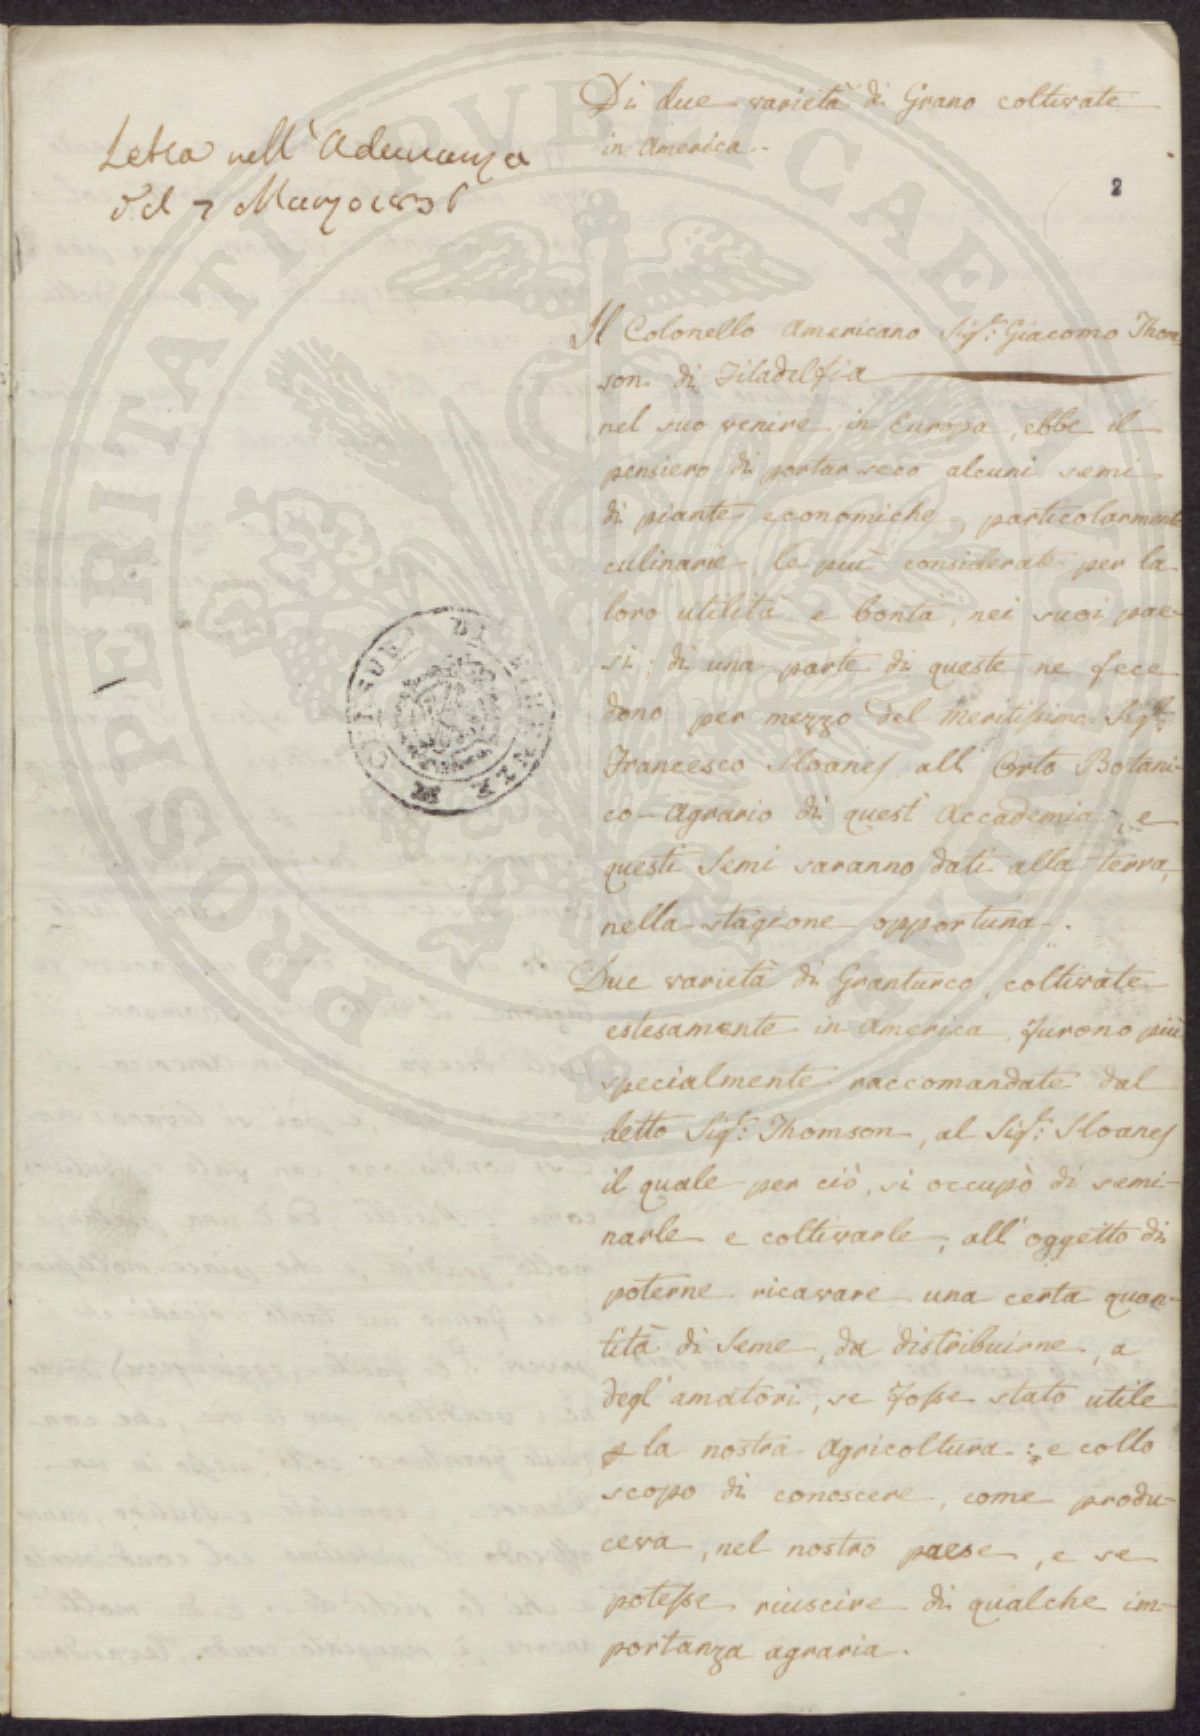 Di due varietà di Grano coltivate
in America.
Letta nell'Adunanza
del 7 Marzo 1836
8
Il Colonello Americano Sigr: Giacomo Thom
son di Filadelfia
nel suo venire in Europa, ebbe il
pensiero di portar seco alcuni semi
di piante economiche, particolarmente
culinarie, le più considerate per la
loro utilità e bontà, nei suoi pae-
si; di una parte di queste ne fece
dono per mezzo del meritissimo Sigr:
Francesco Sloanes, all Orto Botani-
co-Agrario di quest' Accademia, e
questi Semi saranno dati alla terra,
nella stagione opportuna.
Due varietà di Granturco, coltivate
estesamente in America, furono più
specialmente raccomandate dal
detto Sigr: Thomson, al Sigr: Sloanes
il quale per ciò, si occupò di semi-
narle e coltivarle, all'oggetto di
poterne ricavare una certa quan-
tità di Seme, da distribuirne, a
degl'amatori, se fosse stato utile
la nostra Agricoltura: e collo
scopo di conoscere, come produ-
ceva, nel nostro paese, e se
potesse riuscire di qualche im-
portanza agraria.
PROSPERITATI PVBLICAE